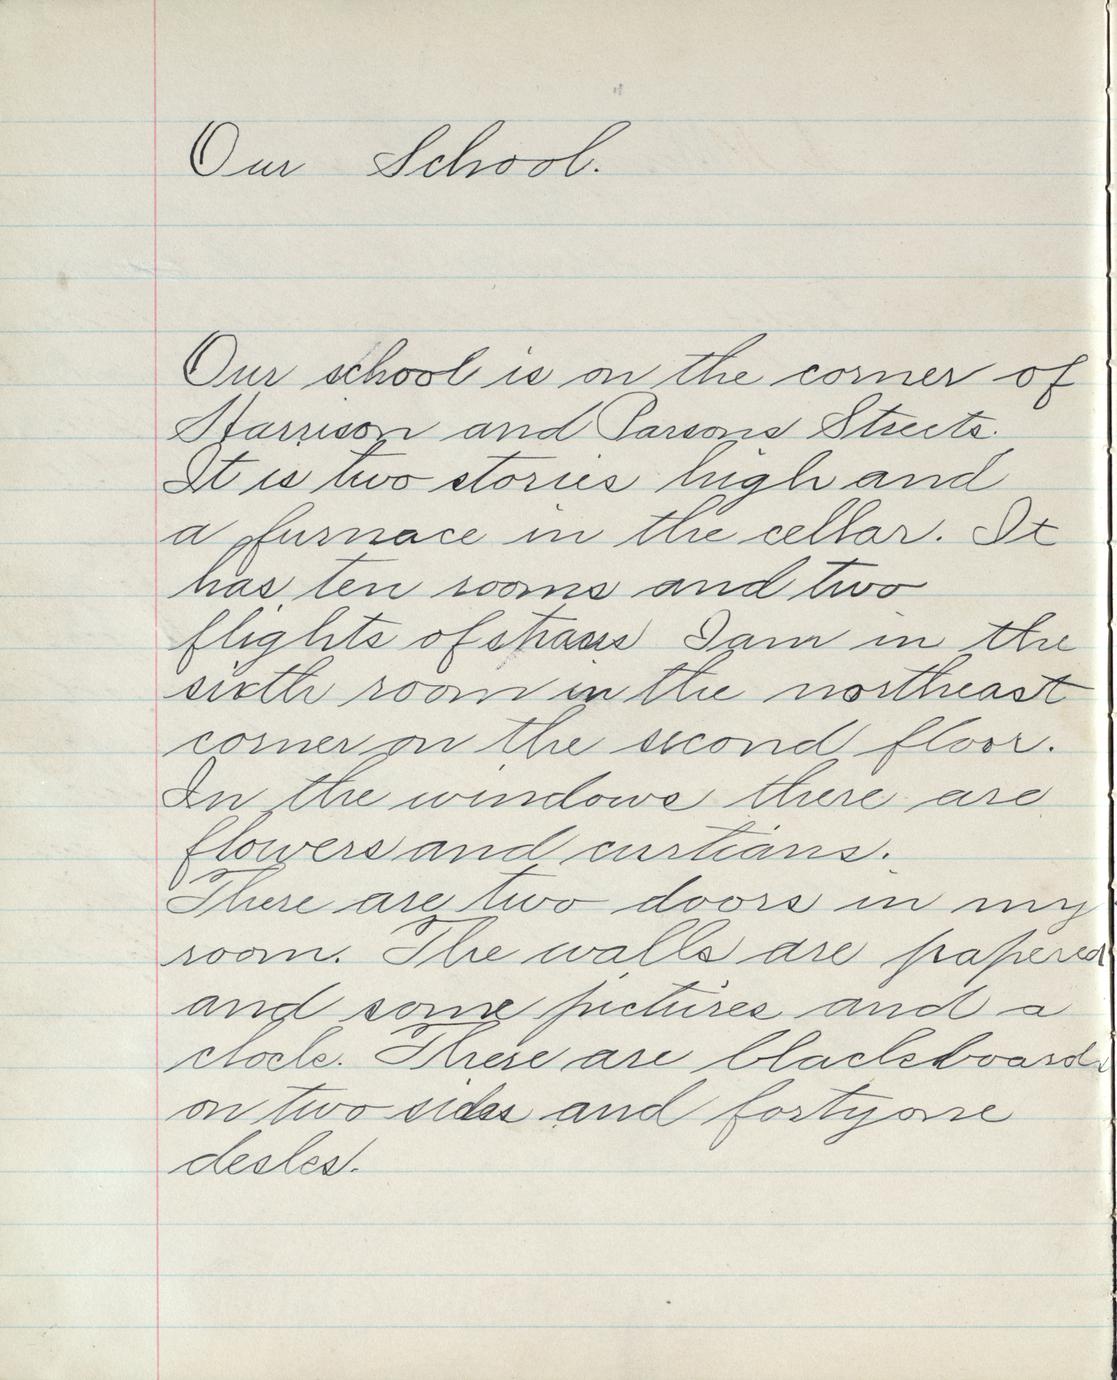 Our School.
Our school is on the corner of
Harrison and Parsons Streets.
It is two stories high and
a furnace in the cellar. It
has ten rooms and two
flights of stairs I am in the
sixth room in the northeast
corner on the second floor.
In the windows there are
flowers and curtians.
There are two doors in my
room. The walls are papered
and some pictures and a
clock. There are blackboards
on two sides and fortyone
desks.